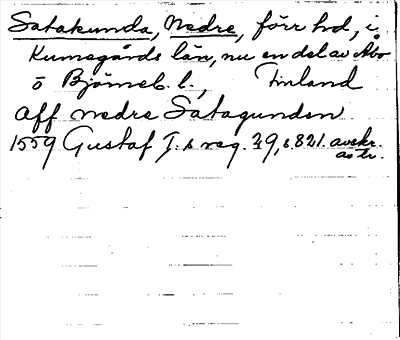 Satakunda, Nedre, förr hd, i
Kumogårds län, nu en del av Åbo
o Björneb. l., Finland
aff nedre Satagunden
1559 Gustaf I:s reg. 29, s. 821. avskr.